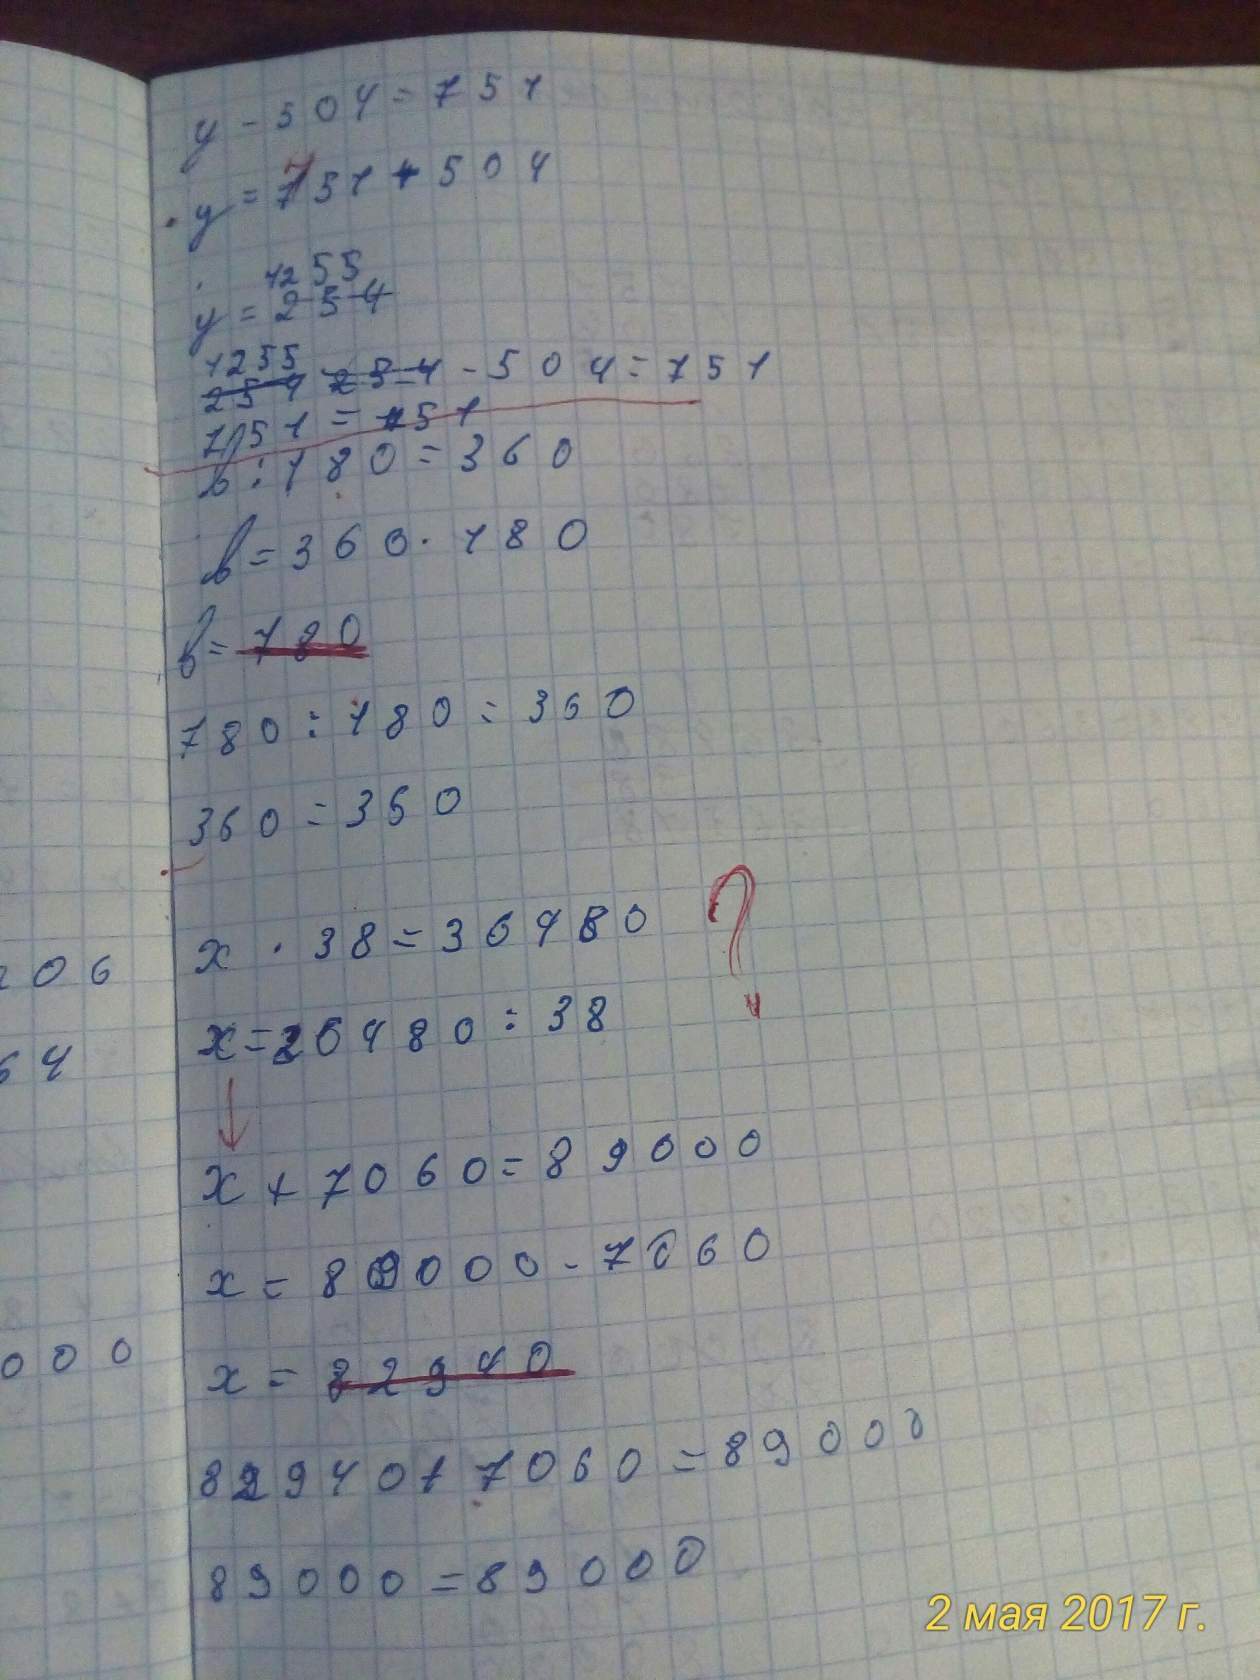 у - 504 = 751
у = 751 + 504
1255
у = 254
1255
254 254 - 504 = 751
751 = 751
в : 180 = 360
в = 360 · 180
в = 780
780 : 180 = 360
360 = 360
х · 38 = 36480 ?
х = 26480 : 38
х + 7060 = 89000
х = 89000 - 7060
х = 82940
82940 + 7060 = 89000
89000 = 89000
06
64
000
2 мая 2017 г.